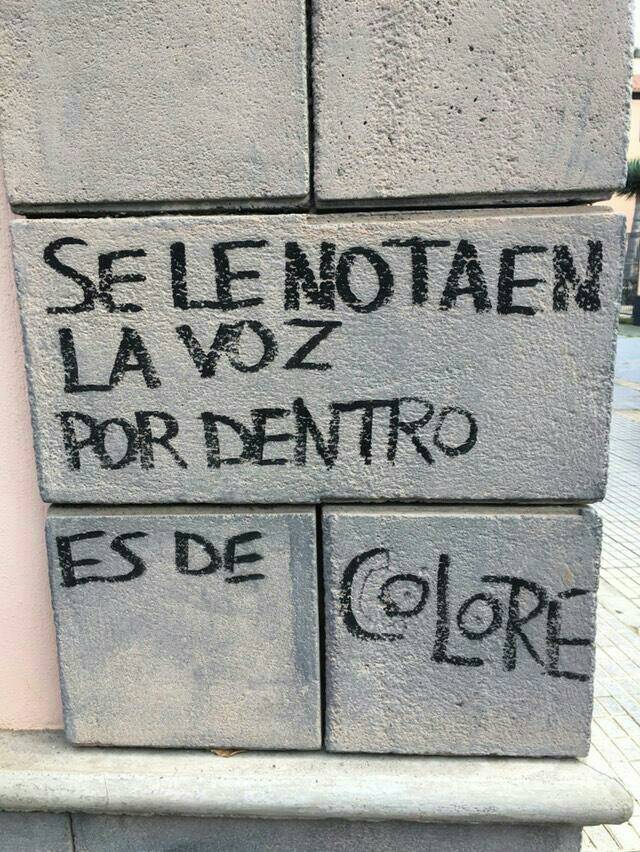 SE LE NOTA EN
LA VOZ
POR DENTRO
ES DE COLORÉ